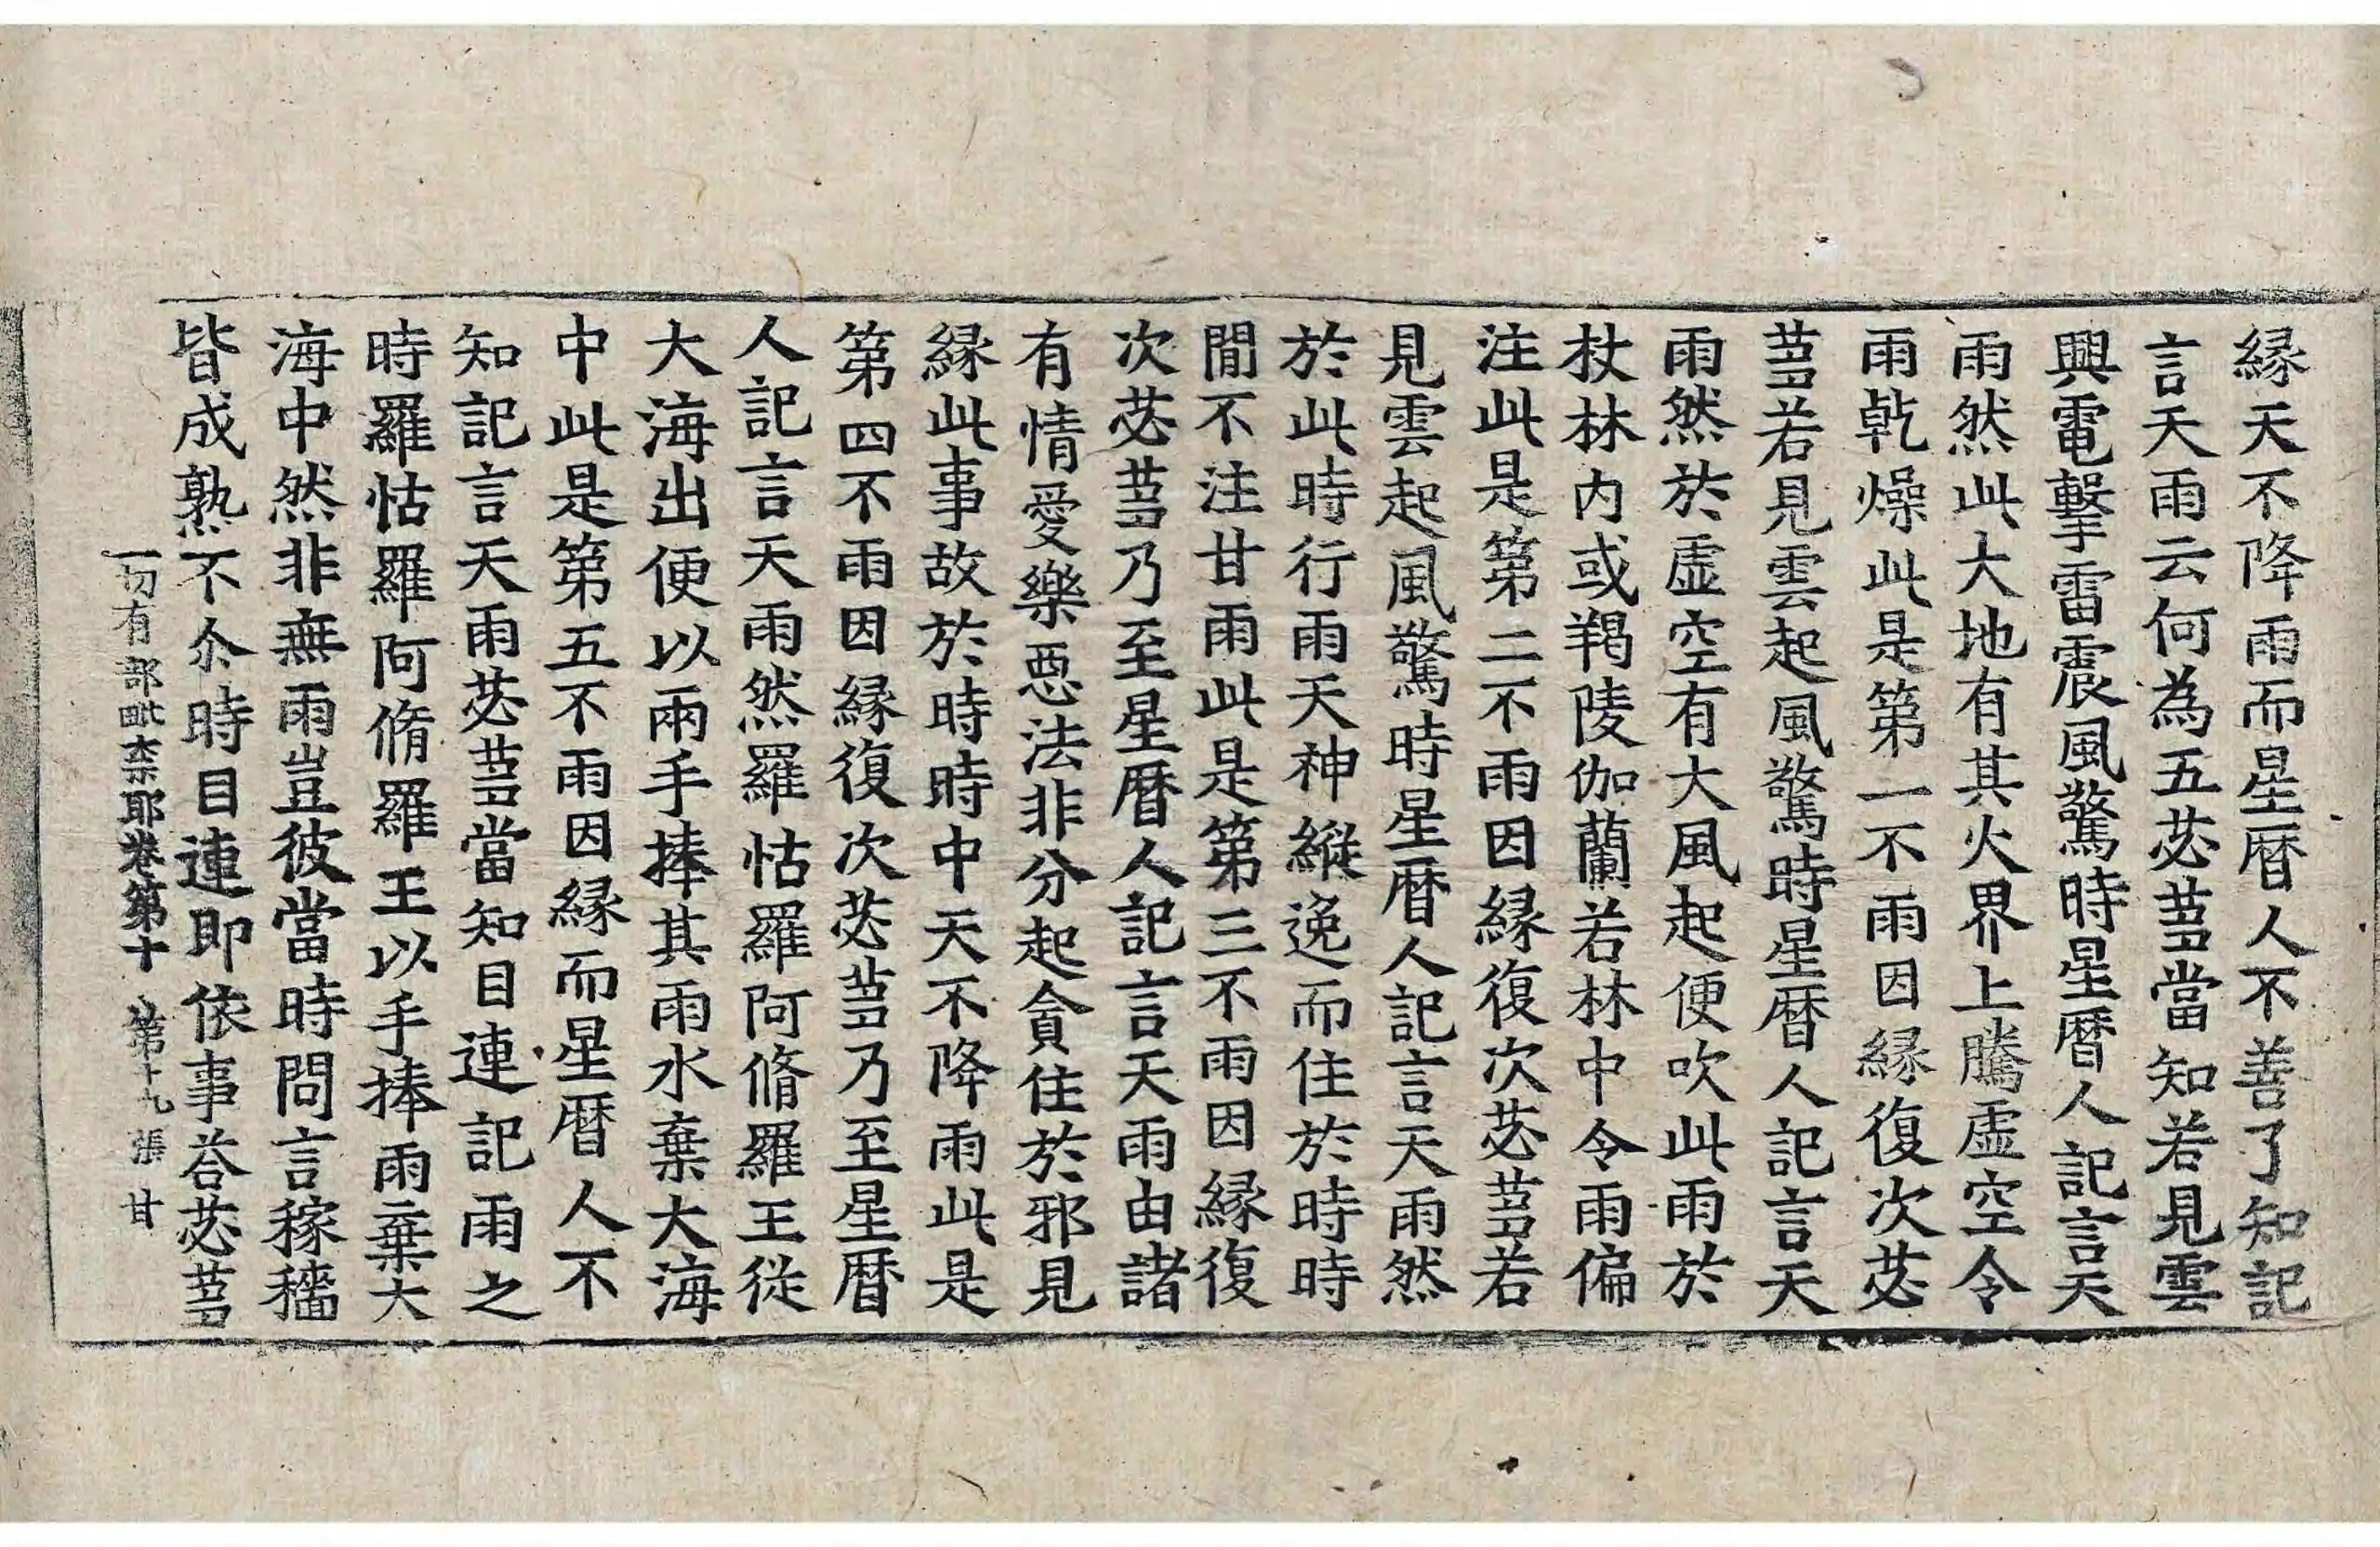 縁天不降雨而星曆人不善了知記
言天雨云何為五苾蒭當知若見雲
興電擊雷震風驚時星曆人記言天
雨然此大地有其火界上騰虛空令
雨乾燥此是第一不雨因縁復次苾
蒭若見雲起風驚時星曆人記言天
雨然於虛空有大風起便吹此雨於
杖林内或羯陵伽蘭若林中令雨偏
注此是第二不雨因縁復次苾蒭若
見雲起風驚時星曆人記言天雨然
於此時行雨天神縱逸而住於時時
間不注甘雨此是第三不雨因縁復
次苾蒭乃至星曆人記言天雨由諸
有情愛樂惡法非分起貪住於邪見
縁此事故於時時中天不降雨此是
第四不雨因縁復次苾蒭乃至星曆
人記言天雨然羅怙羅阿脩羅王從
大海出便以兩手捧其雨水棄大海
中此是第五不雨因縁而星曆人不
知記言天雨苾蒭當知目連記雨之
時羅怙羅阿脩羅王以手捧雨棄大
海中然非無雨豈彼當時問言稼穡
皆成熟不尒時目連即依事荅苾蒭
一切有部毗柰耶卷第十 第十九張 甘